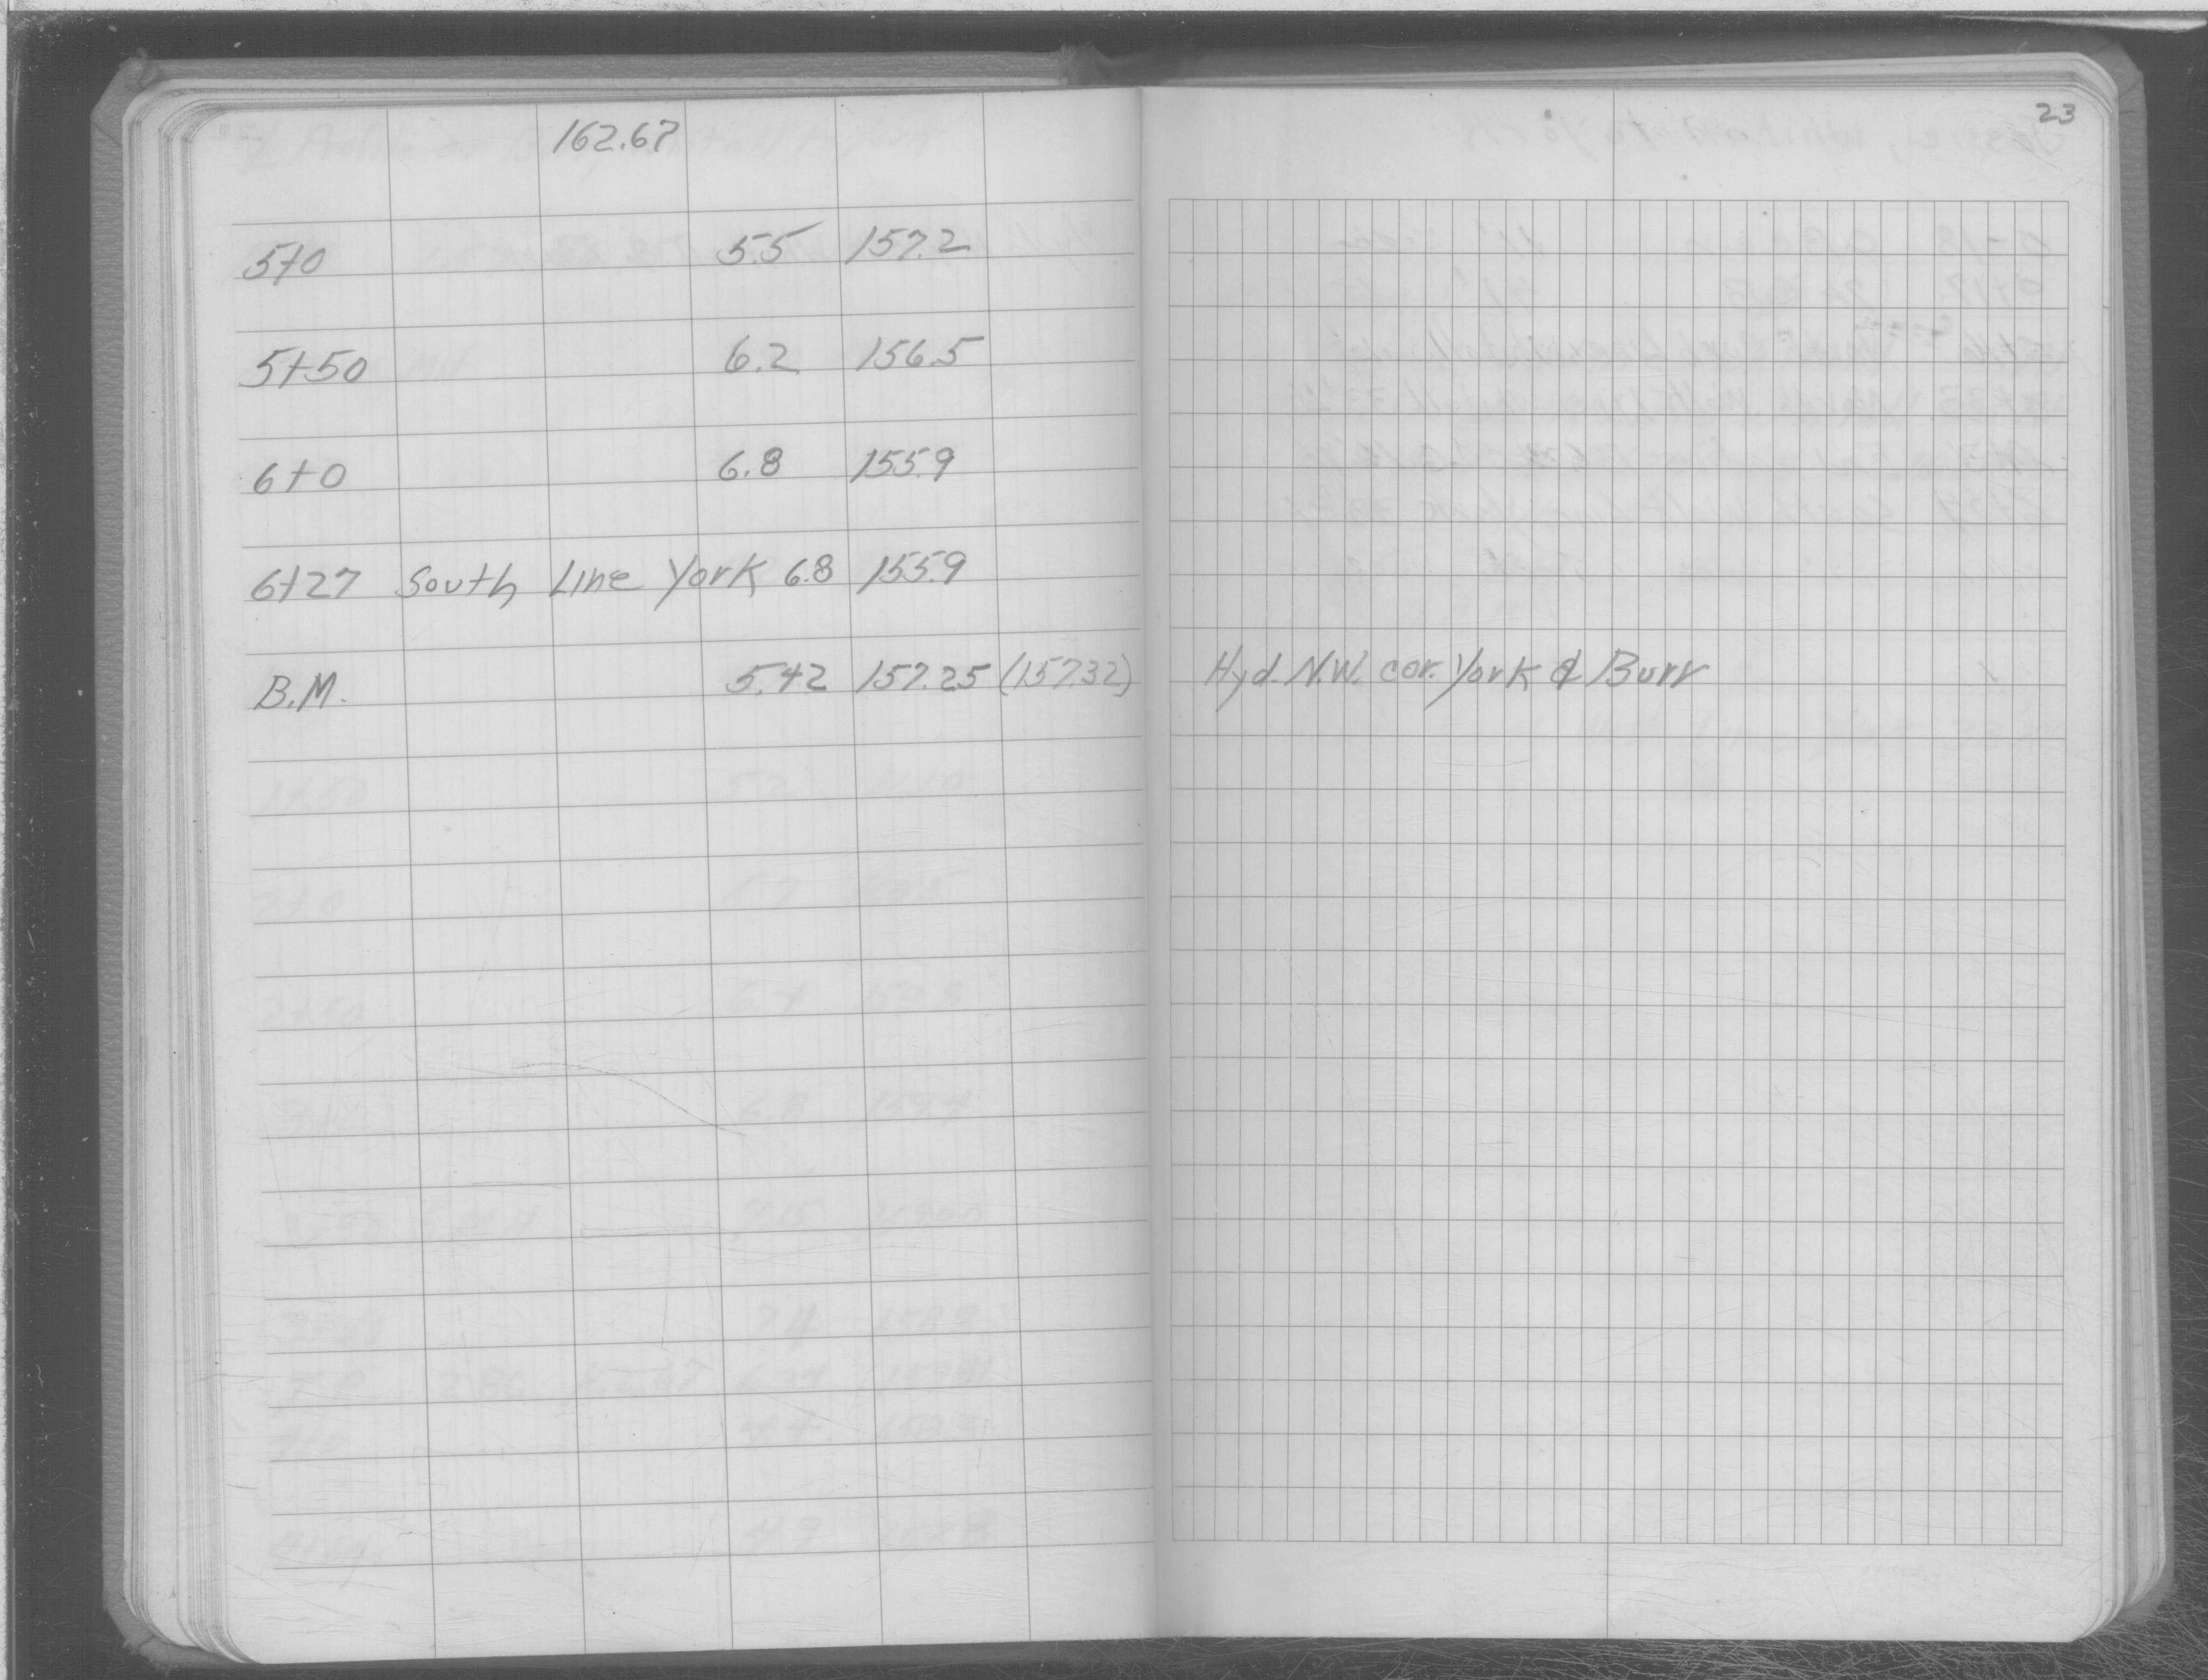 23
162.67
5+0 5.5 157.2
5+50 6.2 156.5
6+0 6.8 155.9
6+27 South Line York 6.8 155.9
B.M. 5.42 157.25 (157.32) Hyd. N.W. cor. York & Burr